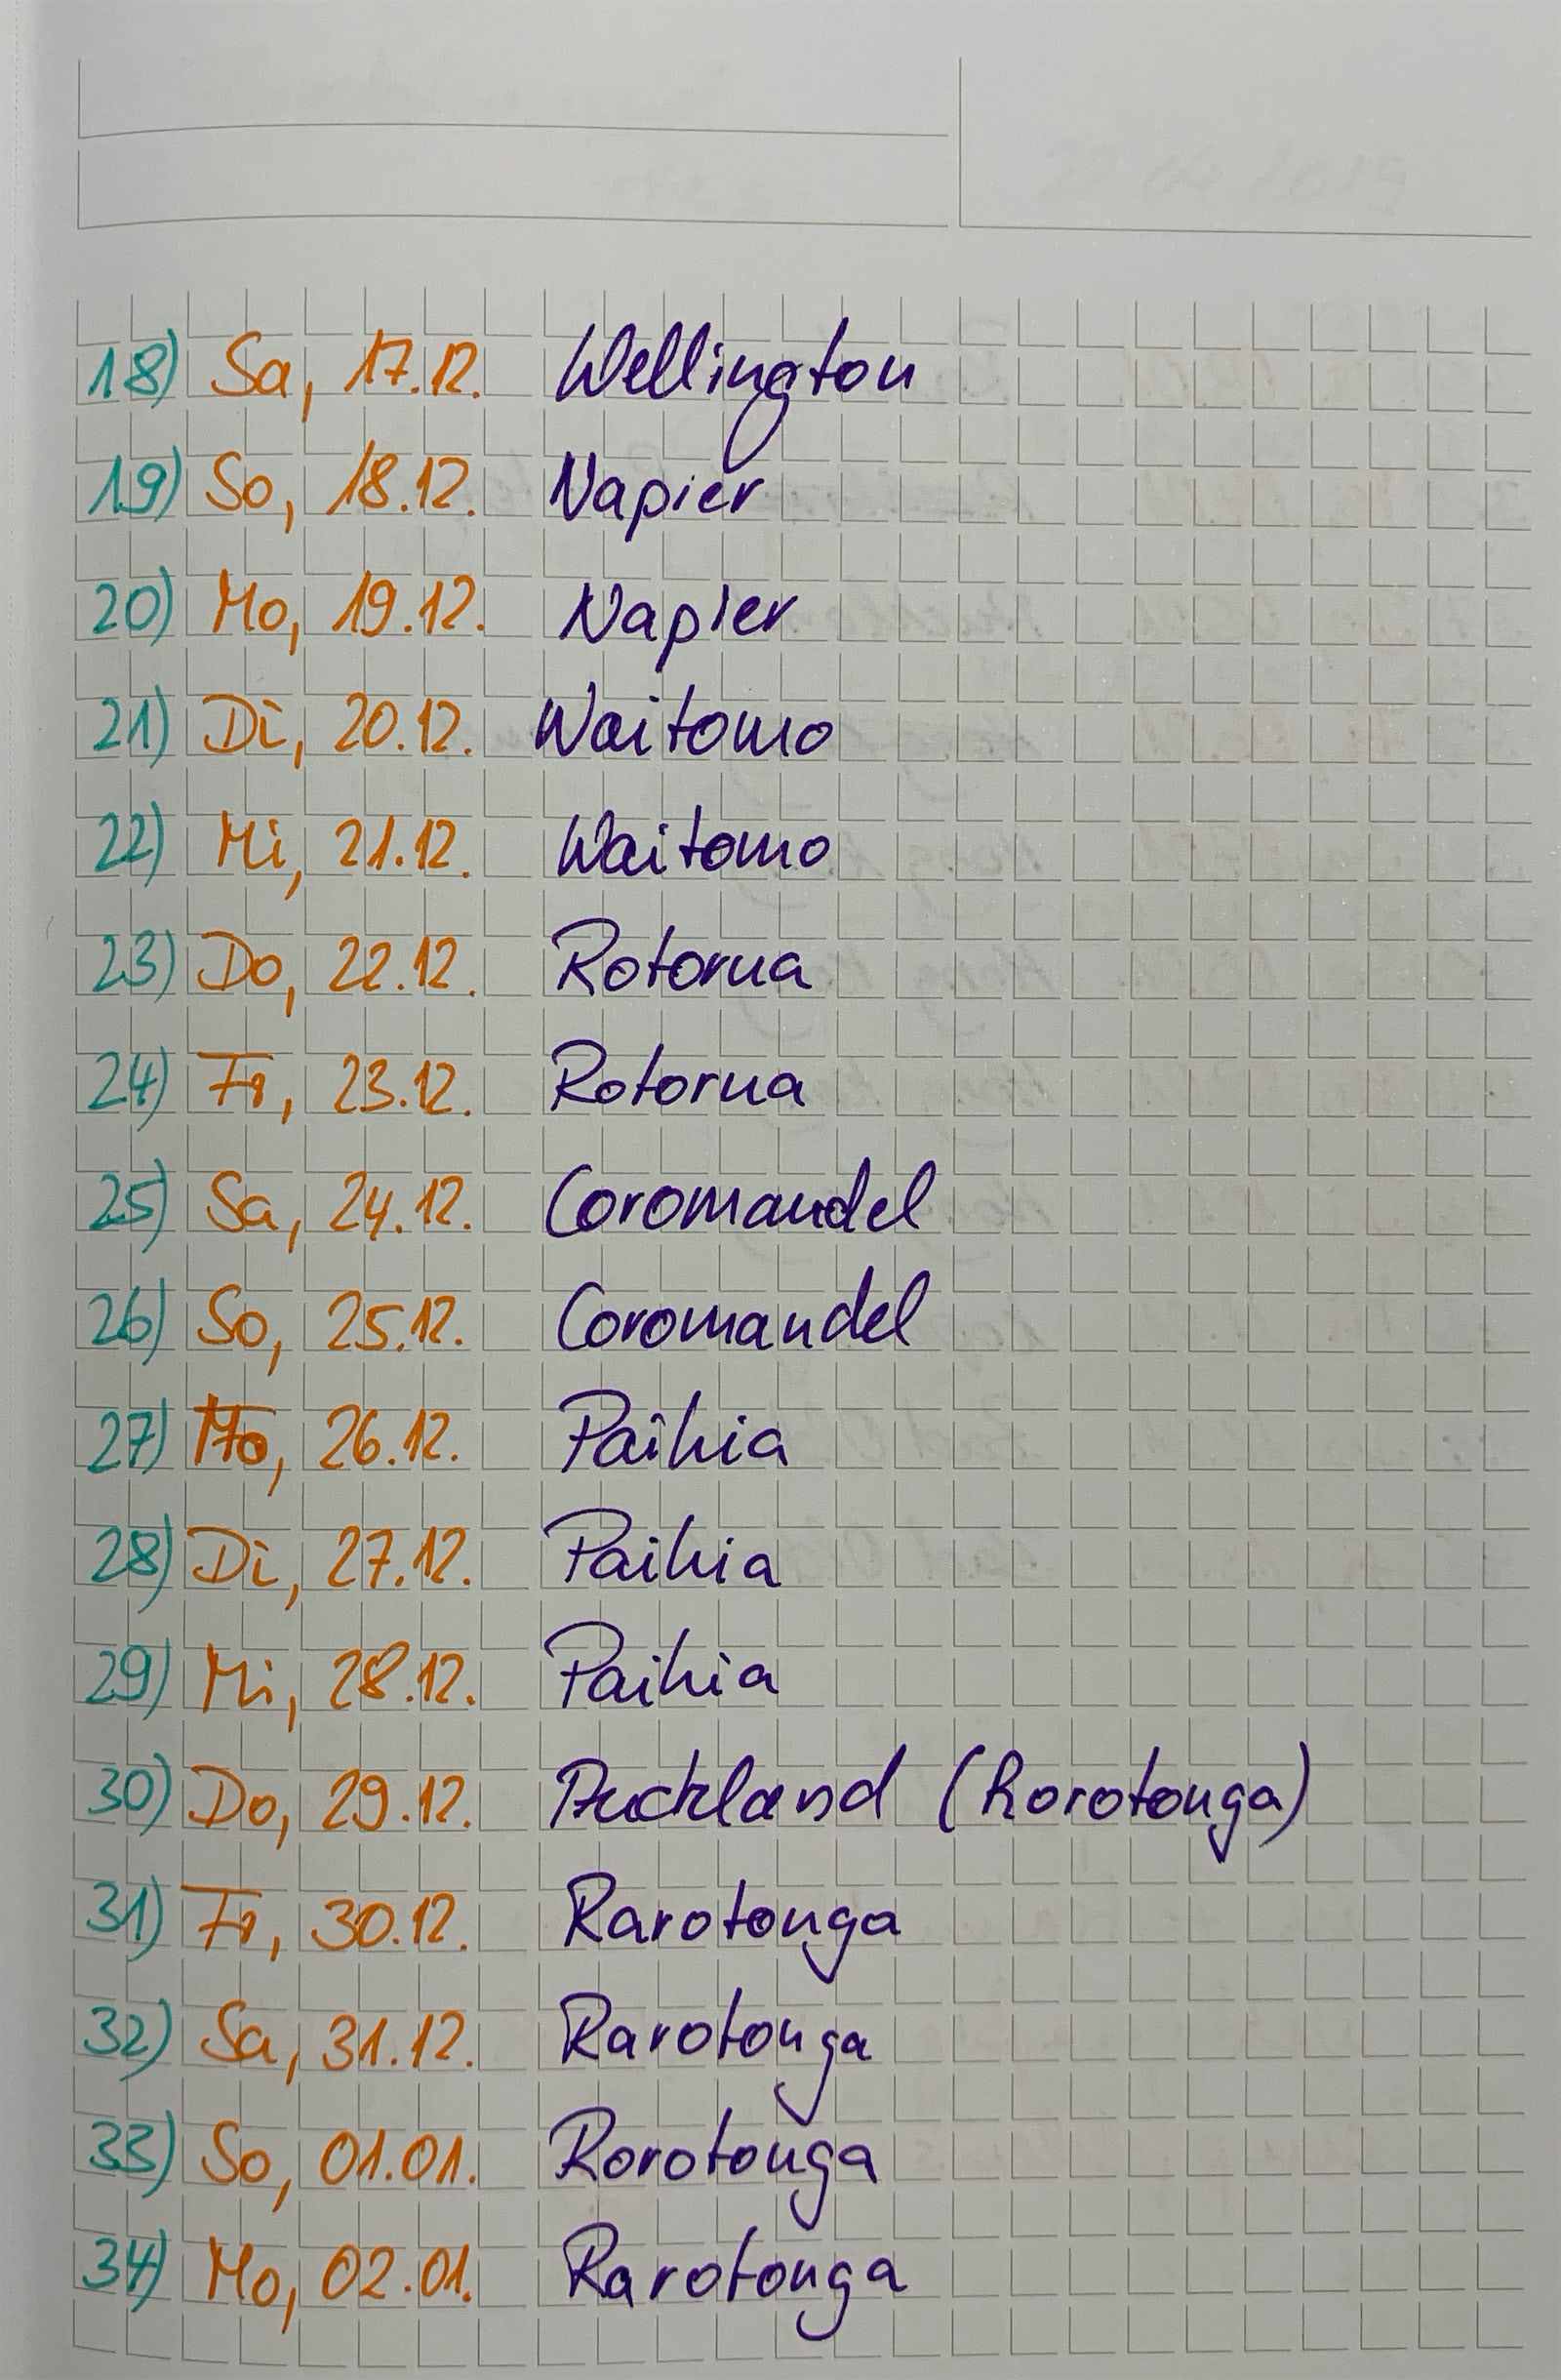 18) Sa, 17.12. Wellington
19) So, 18.12. Napier
20) Mo, 19.12. Napier
21) Di, 20.12. Waitomo
22) Mi, 21.12. Waitomo
23) Do, 22.12. Rotorua
24) Fr, 23.12. Rotorua
25) Sa, 24.12. Coromandel
26) So, 25.12. Coromandel
27) Mo, 26.12. Paihia
28) Di, 27.12. Paihia
29) Mi, 28.12. Paihia
30) Do, 29.12. Auckland (Rorotonga)
31) Fr, 30.12. Rarotonga
32) Sa, 31.12. Rarotonga
33) So, 01.01. Rorotonga
34) Mo, 02.01. Rarotonga